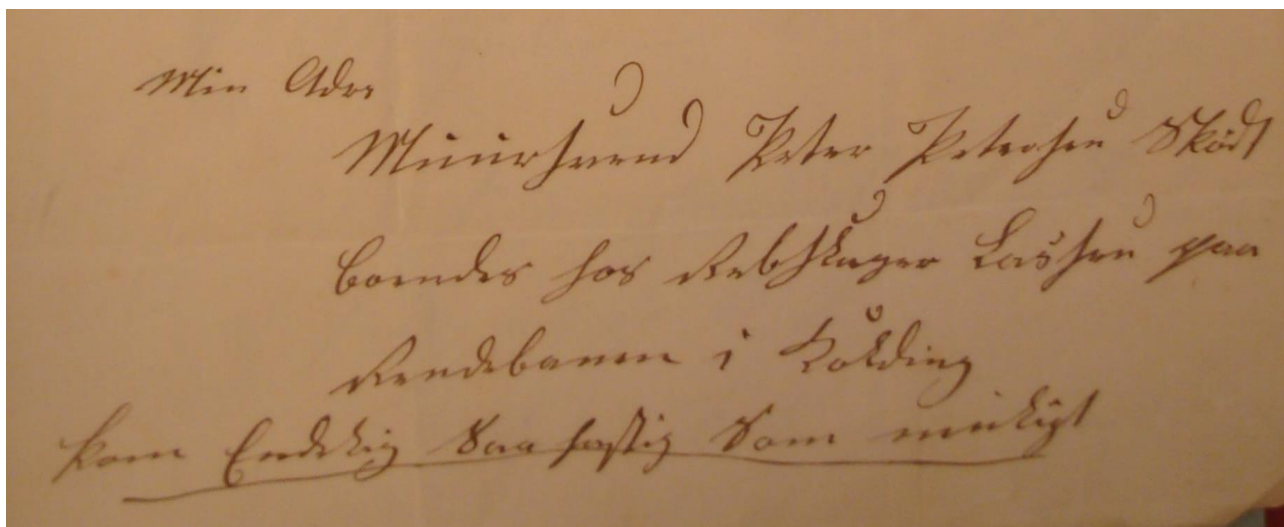 Min Adre
Muursvend Peter Petersen Sködt
boendes hos Rebslager Lassen paa
Rendebanen i Kolding
kom Endelig Saa hastig Som muligt